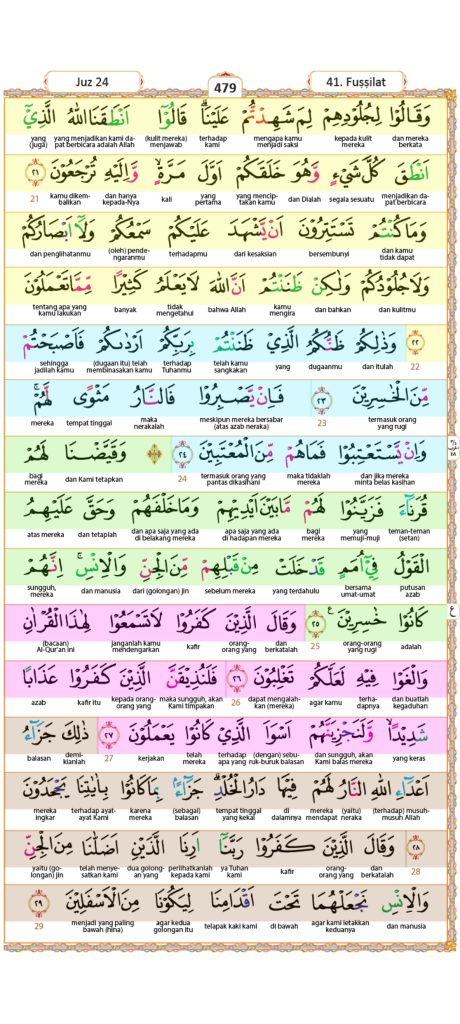 Juz 24
479
41. Fuṣṣilat
وَقَالُوْا لِجُلُوْدِهِمْ لِمَ شَهِدْتُّمْ عَلَيْنَاۗ قَالُوْٓا اَنْطَقَنَا اللّٰهُ الَّذِيْٓ
yang yang menjadikan kami da- (kulit mereka) terhadap mengapa kamu kepada kulit dan mereka
(juga) pat berbicara adalah Allah menjawab kami menjadi saksi mereka berkata
اَنْطَقَ كُلَّ شَيْءٍ وَّهُوَ خَلَقَكُمْ اَوَّلَ مَرَّةٍۙ وَّاِلَيْهِ تُرْجَعُوْنَ ٢١
kamu dikem- dan hanya kali yang yang mencip- dan Dialah segala sesuatu menjadikan da-
21 balikan kepada-Nya pertama takan kamu pat berbicara
وَمَا كُنْتُمْ تَسْتَتِرُوْنَ اَنْ يَّشْهَدَ عَلَيْكُمْ سَمْعُكُمْ وَلَآ اَبْصَارُكُمْ
dan penglihatanmu (oleh) pende- terhadapmu dari kesaksian bersembunyi dan kamu
ngaranmu tidak dapat
وَلَا جُلُوْدُكُمْ وَلٰكِنْ ظَنَنْتُمْ اَنَّ اللّٰهَ لَا يَعْلَمُ كَثِيْرًا مِّمَّا تَعْمَلُوْنَ
tentang apa yang banyak tidak bahwa Allah kamu dan bahkan dan kulitmu
kamu lakukan mengetahui mengira
٢٢ وَذٰلِكُمْ ظَنُّكُمُ الَّذِيْ ظَنَنْتُمْ بِرَبِّكُمْ اَرْدٰىكُمْ فَاَصْبَحْتُمْ
sehingga (dugaan itu) telah terhadap telah kamu yang dugaanmu dan itulah 22
jadilah kamu membinasakan kamu Tuhanmu sangkakan
مِّنَ الْخٰسِرِيْنَ ٢٣ فَاِنْ يَّصْبِرُوْا فَالنَّارُ مَثْوًى لَّهُمْۚ
mereka tempat tinggal maka meskipun mereka bersabar 23 termasuk orang
nerakalah (atas azab neraka) yang rugi
وَاِنْ يَّسْتَعْتِبُوْا فَمَا هُمْ مِّنَ الْمُعْتَبِيْنَ ٢٤ وَقَيَّضْنَا لَهُمْ
bagi dan Kami tetapkan 24 termasuk orang yang maka tidaklah dan jika mereka
mereka pantas dikasihani mereka minta belas kasihan
قُرَنَاۤءَ فَزَيَّنُوْا لَهُمْ مَّا بَيْنَ اَيْدِيْهِمْ وَمَا خَلْفَهُمْ وَحَقَّ عَلَيْهِمُ
atas mereka dan tetaplah dan apa saja yang ada apa saja yang ada bagi yang teman-teman
di belakang mereka di hadapan mereka mereka memuji-muji (setan)
الْقَوْلُ فِيْٓ اُمَمٍ قَدْ خَلَتْ مِنْ قَبْلِهِمْ مِّنَ الْجِنِّ وَالْاِنْسِۚ اِنَّهُمْ
sungguh, dan manusia dari (golongan) jin sebelum mereka yang terdahulu bersama putusan
mereka umat-umat azab
كَانُوْا خٰسِرِيْنَ ࣖ ٢٥ وَقَالَ الَّذِيْنَ كَفَرُوْا لَا تَسْمَعُوْا لِهٰذَا الْقُرْاٰنِ
(bacaan) janganlah kamu kafir orang- dan 25 orang-orang adalah
Al-Qur'an ini mendengarkan orang yang berkatalah yang rugi
وَالْغَوْا فِيْهِ لَعَلَّكُمْ تَغْلِبُوْنَ ٢٦ فَلَنُذِيْقَنَّ الَّذِيْنَ كَفَرُوْا عَذَابًا
azab kafir itu kepada orang- maka sungguh, akan 26 dapat mengalah- agar kamu terha- dan buatlah
orang yang Kami timpakan kan (mereka) dapnya kegaduhan
شَدِيْدًاۙ وَّلَنَجْزِيَنَّهُمْ اَسْوَاَ الَّذِيْ كَانُوْا يَعْمَلُوْنَ ٢٧ ذٰلِكَ جَزَاۤءُ
balasan demi- 27 kerjakan telah terhadap (dengan) sebu- dan sungguh, akan yang keras
kianlah mereka apa yang ruk-buruk balasan Kami balas mereka
اَعْدَاۤءِ اللّٰهِ النَّارُۚ لَهُمْ فِيْهَا دَارُ الْخُلْدِۗ جَزَاۤءًۢ بِمَا كَانُوْا بِاٰيٰتِنَا يَجْحَدُوْنَ
mereka terhadap ayat- karena (sebagai) tempat tinggal di mereka (yaitu) (terhadap) musuh-
ingkar ayat Kami mereka balasan yang kekal dalamnya mendapat neraka musuh Allah
٢٨ وَقَالَ الَّذِيْنَ كَفَرُوْا رَبَّنَآ اَرِنَا الَّذَيْنِ اَضَلّٰنَا مِنَ الْجِنِّ
yaitu (go- telah menye- dua golong- perlihatkanlah ya Tuhan kafir orang- dan 28
longan) jin satkan kami an yang kepada kami kami orang yang berkatalah
وَالْاِنْسِ نَجْعَلْهُمَا تَحْتَ اَقْدَامِنَا لِيَكُوْنَا مِنَ الْاَسْفَلِيْنَ ٢٩
menjadi yang paling agar kedua telapak kaki kami di bawah agar kami letakkan dan manusia
29 bawah (hina) golongan itu keduanya